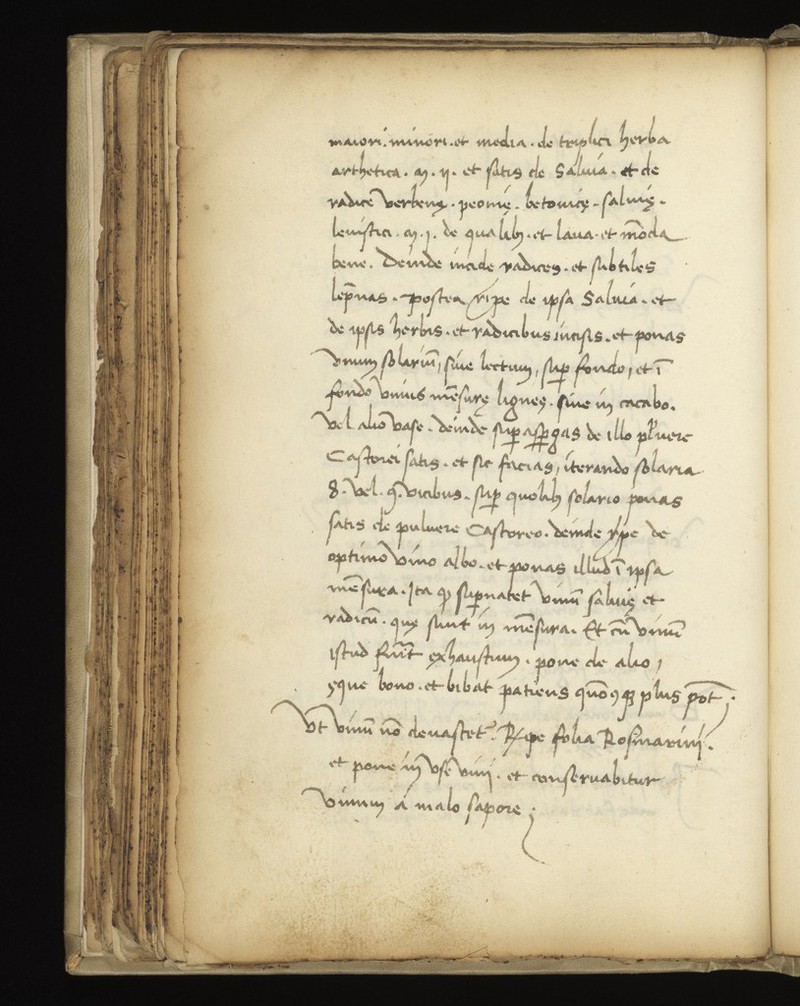 maiori. minori. et media. de triplici herba
arthetica. m. ij. et satis de Saluia. et de
radice verbenę. peonię. betonicę. saluię.
leuistici. m. j. de qualibꝫ. et laua. et mōda
bene. Deinde incide radices. et subtiles
postea ripe de ipsa Saluia. et
de ipsis herbis. et radicibus incisis. et ponas
vnum solariū, siue lectum, suꝑ fondo, et ī
fondo vnius mēsurę lignęę. siue in cacabo.
vel alio vase. deinde suꝑasꝑgas de illo pluere
Castorei satis. et sic facias, iterando solaria
8. vel. 9. vicibus. suꝑ quolibꝫ solario ponas
satis de puluere Castoreo. deinde rpe de
optimo vino albo. et ponas illud ī ipsa
mēsura. Ita ꝙ suꝑnatet vinū saluię et
radicū. quę sunt in mēsura. Et cū vinū
istud fuīt exhaustum. pone de alio,
ęque bono. et bibat patiens plus pot̄;
Vt vinū nō deuastet᷑. Rpe folia Rosmarinij.
et pone in vse vinj. et conseruabitur
vinum á malo sapore;